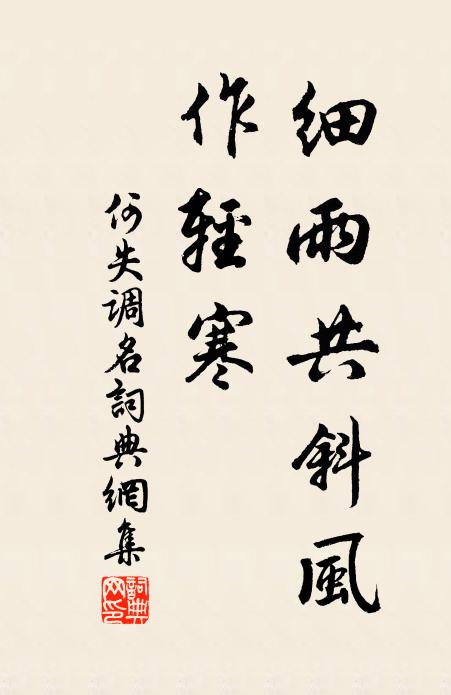 細雨共斜風
作輕寒
何失调名詞典網集
詞典网印